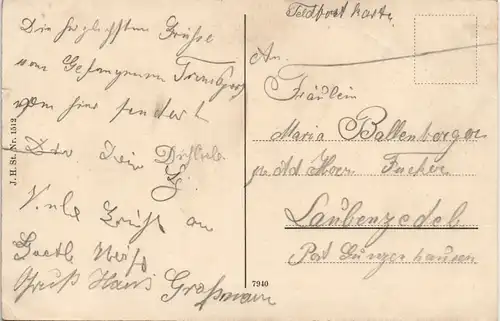 Die herzlichsten Grüße
vom Gefangenen Transport
von hier sendet
Dir Dein
Viele Grüße an
Gruß Hans Graßmann
J. H. St. Nr. 1512
7940
Feldpostkarte
An
Fräulein
Maria Ballenberger
Laubenzedel
Post Gunzenhausen